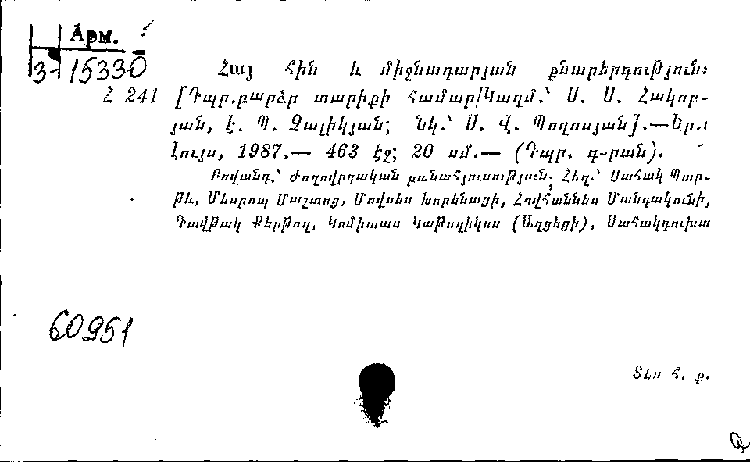 Арм.
3-15330
Հայ հին և միջնադարյան քնարերգություն:
Հ 241 [Դպր. բարձր տարիքի համար/Կազմ.՝ Ս. Ս. Հակոբ-
յան, է. Պ. Ջալիկյան; նկ.՝ Ս. Վ. Պողոսյան].— Եր.:
Լույս, 1987.— 463 էջ; 20 սմ.— (Դպր. գ-րան).
Բովանդ.՝ Ժողովրդական բանահյուսություն; Հեղ.՝ Սահակ Պար-
թև, Մեսրոպ Մաշտոց, Մովսես Խորենացի, Հովհաննես Մանդակունի,
Դավթակ Քերթող, Կոմիտաս Կաթողիկոս (Աղցեցի), Սահակդուխտ
60951
Տես հ. ք.